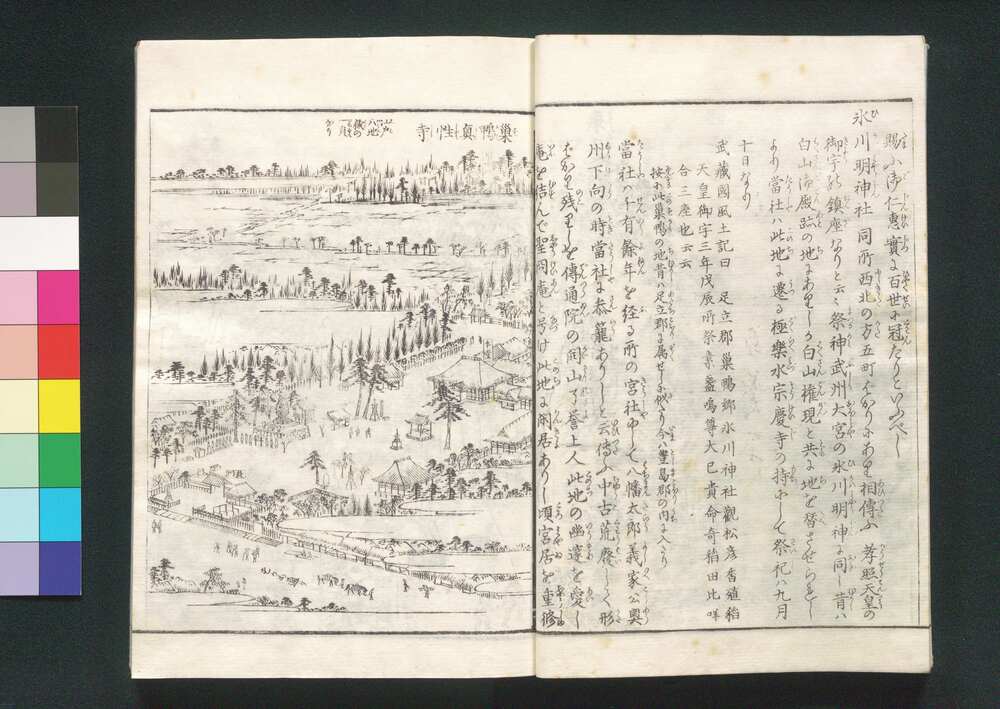 賜ふ御仁惠實に百世に冠たりといふべし
氷川明神社 同所西北の方五町ばかりにあり相傳ふ 孝照天皇の
御宇の鎮座なりと云々祭神武州大宮の氷川明神に同し昔ハ
白山御殿跡の地にありしか白山権現と共に地を替させられし
より當社ハ此地に遷る極樂水宗慶寺の持にして祭祀ハ九月
十日なり
武藏國風土記曰 足立郡巣鴨郷氷川神社觀松彦香殖稻
天皇御宇三年戊辰所祭素盞嗚尊大己貴命奇稲田比咩
合三座也云云
按に此巣鴨の地昔ハ足立郡に属せしにや今ハ豊島郡の内に入たり
當社ハ千有餘年を経る所の宮社にして八幡太郎義家公奥
州下向の時當社に参籠ありしと云傳ふ中古荒廢しく形
はかり残りしを傳通院の開山了誉上人此地の幽邃を愛し
庵を結んで聖冏庵と号け此地に閑居ありし頃宮居を重修
巣鴨真性寺
江戸
六地
蔵の
一員
なり